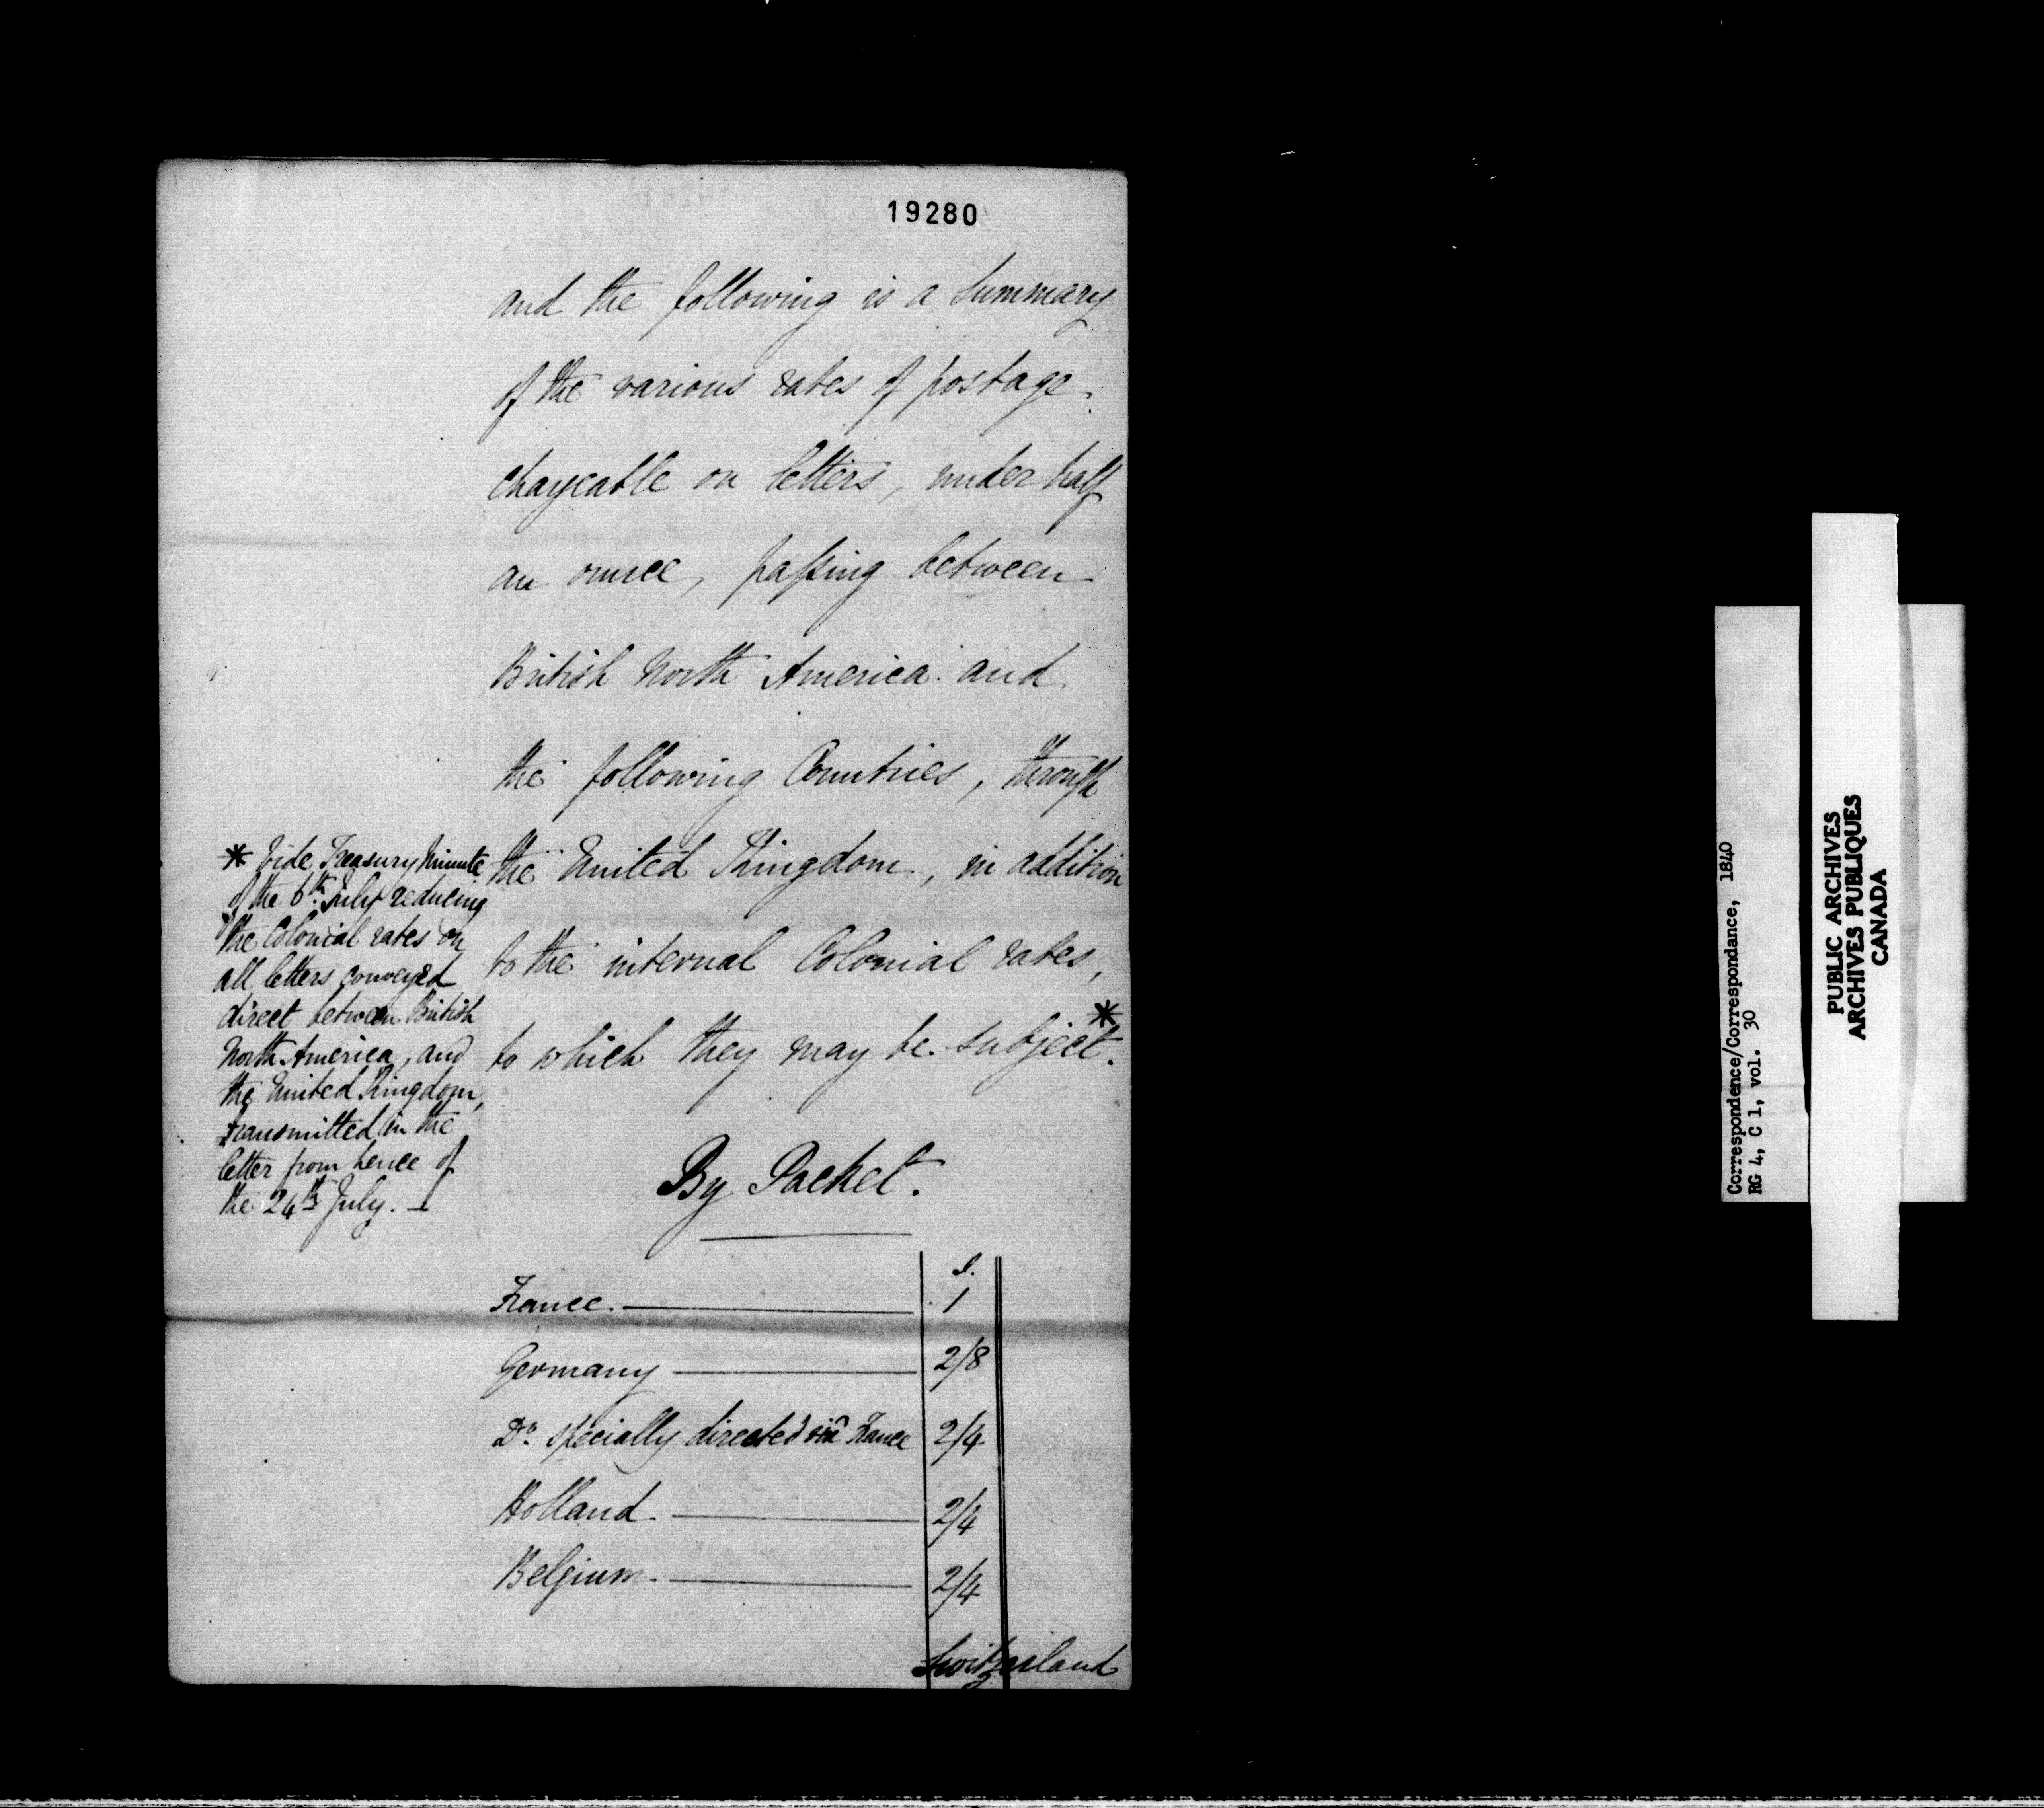 19280
and the following is a Summary
of the various rates of postage
chargeable on letters, under half
an ounce, passing between
British North America and
the following Countries, through
the United Kingdom, in addition
to the internal Colonial rates,
to which they may be subject.*
* Vide Treasury Minute
of the 6th. July reducing
the Colonial rates on
all letters conveyed
direct between British
North America, and
the United Kingdom,
transmitted in the
letter from hence of
the 24th July. —
By Packet.
s.
France. 1
Germany 2/8
Do. specially directed viâ France 2/4
Holland. 2/4
Belgium. 2/4
Switzerland
Correspondence/Correspondance, 1840
RG 4, C 1, vol. 30
PUBLIC ARCHIVES
ARCHIVES PUBLIQUES
CANADA